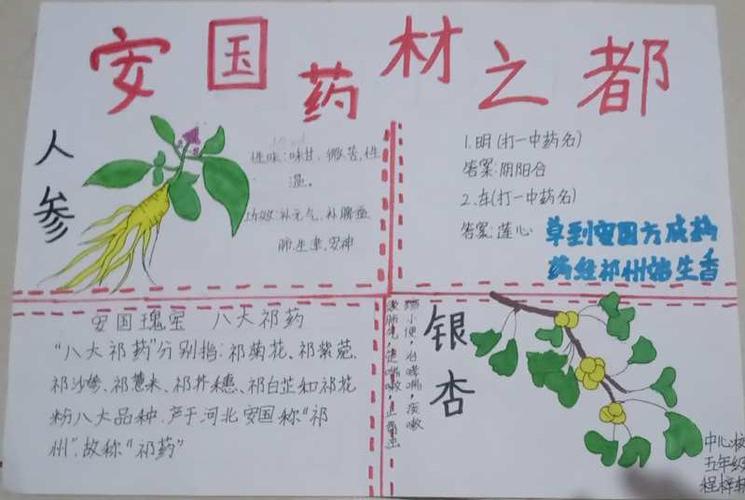 安国药材之都
人参
性味:味甘、微苦,性
温。
功效:补元气,补脾益
肺,生津,安神
1.明(打一中药名)
答案:阴阳合
2.车(打一中药名)
答案:莲心
草到安国方成药
药经祁州始生香
安国瑰宝 八大祁药
“八大祁药”分别指:祁菊花、祁紫菀、
祁沙参、祁薏米、祁芥穗、祁白芷和祁花
粉八大品种,产于河北安国称“祁
州”,故称“祁药”
银杏
缩小便,白哮喘,痰嗽
敛肺气,定喘嗽,
中心校
五年级
程梓